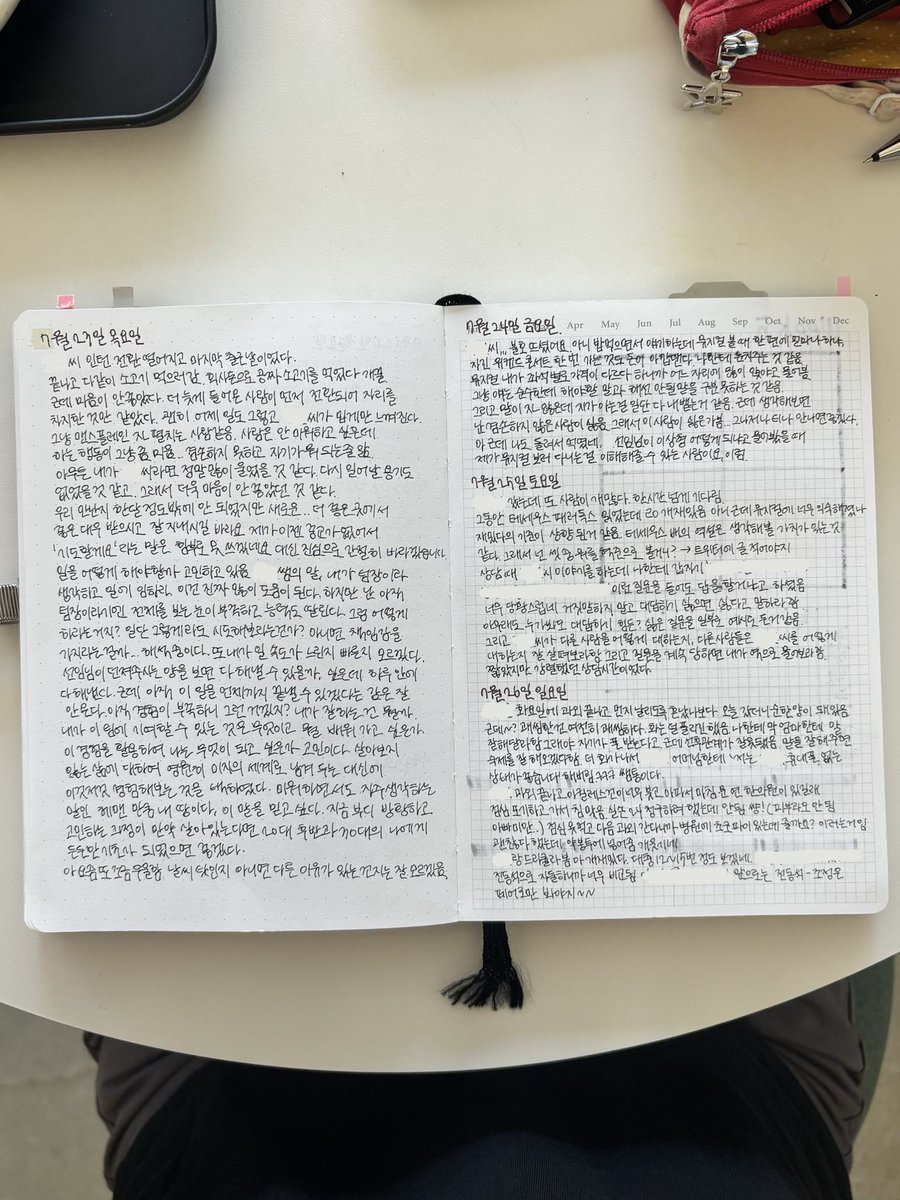 7월 23일 목요일
씨 인턴 전환 떨어지고 마지막 출근날이었다.
끝나고 다같이 소고기 먹으러감. 회사돈으로 공짜 소고기를 먹었다 개꿀
근데 마음이 안좋았다. 더 늦게 들어온 사람이 먼저 전환되어 자리를
차지한 것만 같았다. 괜히 어제 일도 그렇고 씨가 밉게만 느껴진다.
그냥 맨스플레인 지나 펼치는 사람같음. 사람은 안 미워하고 싶은데
하는 행동이 그냥 좀 미움.. 겸손하지 못하고 자기가 뭐 되는줄 앎
아무튼 내가 씨라면 정말 많이 울었을 것 같다. 다시 일어날 용기도
없었을 것 같고.. 그래서 더욱 마음이 안 좋았던 것 같다.
우리 만난지 한달 정도밖에 안 되었지만 새로운... 더 좋은 곳에서
좋은 대우 받으시고 잘 지내시길 바라요. 제가 이젠 종교가 없어서
'기도할게요'라는 말은 함부로 못 쓰겠네요 대신 진심으로 간절히 바라겠습니다
일을 어떻게 해야할까 고민하고 있음. 쌤의 말, 내가 팀장이라
생각하고 일하기 임하라. 이건 진짜 많이 도움이 된다. 하지만 난 아직
팀장이라기엔 전체를 보는 눈이 부족하고 능력도 딸린다. 그럼 어떻게
하라는거지? 일단 그렇게라도 시도해보라는건가? 아니면 책임감을
가지라는 걸까... 해석 중이다. 또 내가 일 속도가 느린지 빠른지 모르겠다.
선임님이 던져주시는 양을 보면 다 해낼 수 있을까, 싶은데 하루 안에
다 해낸다. 근데 아직 이 일을 언제까지 끝낼 수 있겠다는 감은 잘
안온다. 아직 경험이 부족하니 그런 거겠지? 내가 잘하는 건 뭘까.
내가 이 일에 기여할 수 있는 것은 무엇이고 뭘 바꾸고 싶을까
이 경험을 활용하여 나는 무엇이 되고 싶은가 고민이다. 살아보지
않는 삶에 대하여 영원히 미지의 세계로 남겨 두는 대신에
이것저것 경험해보는 것을 택하였다. 이동하면서도 자주 생각하는
말인 헤맨 만큼 내 땅이다, 이 말을 믿고 싶다. 지금 보다 방황하고
고민하는 과정이 만약 살아있는다면 20대 후반과 30대의 나에게
든든한 기초가 되었으면 좋겠다.
아 요즘 또 조금 우울함. 날씨 탓인지 아니면 다른 이유가 있는 건지는 잘 모르겠음.
7월 24일 금요일
Apr May Jun Jul Aug Sep Oct Nov Dec
씨... 불호 뜨셨어요. 아니 밥먹으면서 얘기하는데 뮤지컬 볼 때 한 편에 얼마나 하냐,
자긴 위켄드 콘서트 한 번 가는 것도 돈이 아깝댄다. 나한테 눈치주는 것 같음
뮤지컬 내가 좌석별로 가격이 다르다 하니까 어느 자리에 많이 앉냐고 물어봄
그냥 얘는 순수한데 해야할 말과 해선 안될 말을 구분 못하는 것 같음
그리고 말이 지 않은데 지가 아는걸 일단 다 내뱉는거 같음. 근데 생각해보면
난 겸손하지 않은 사람이 싫음. 그래서 이 사람이 싫은가봄.. 그나저나 티나 안나면 좋겠다.
아 근데 나도 돌려서 먹였네. 선임님이 이상형 어떻게 되냐고 물어봤을 때
제가 뮤지컬 보러 다니는 걸 이해해줄 수 있는 사람이요, 이럼
7월 25일 토요일
갔는데 또 사람이 개많다. 한시간 넘게 기다림.
그동안 테세우스 패러독스 읽었는데 EO 개재밌음 아니 근데 뮤지컬에 너무 익숙해졌나
재밌다의 기준이 상향 된거 같음. 테세우스 배의 역설은 생각해볼 가치가 있는 것
같다. 그래서 넌 씻고 뭐를 기준으로 볼거니? → 트위터에 글 적어야지
상담 때 씨 이야기를 하는데 나한테 갑자기
이런 질문을 들어도 답을 할거냐고 하셨음
너무 당황스럽네 거짓말하지 말고 대답하기 싫으면 싫다고 말하라 함
아무래도 누가봐도 대답하기 힘든? 싫은 질문을 일부러 예시로 든거 같음
그리고 씨가 다른 사람을 어떻게 대하는지. 다른사람들은 씨를 어떻게
대하는지 잘 살펴보라함 그리고 질문을 계속 당하면 내가 역으로 물어보라 함.
짧았지만 강렬했던 상담시간이었다.
7월 26일 일요일
화요일에 과외 끝나고 먼지 날리도록 혼났나보다. 오늘 갔더니 순한 양이 돼있음
근데~ 괘씸한 건 여전히 괘씸하다. 화는 덜 풀리긴 했음. 나한테 막 엄마한테 말
잘해달라함 그래야 자기가 폰 받는다고. 근데 선후관계가 잘못됐음. 말을 잘해주면
숙제를 잘 해오겠다함. 더 화가나서 어머님한테 "저는 휴대폰 없는
상태가 좋습니다" 해버림 ㅋㅋㅋ 쌤통이다.
과외 끝나고 아침에 너무 못고 아파서 마침 문 연 한의원이 있길래
점심 포기하고 가서 침 맞음. 실은 나 청구하려 했는데 안됨 쌍! (피부라도 안 됨
아빠미안..) 점심 못먹고 다음 과외 간다니까 병원에서 초코파이 있는데 줄까요? 이러는거임
괜찮다 했는데 약봉투에 넣어줌 개웃기네
랑 드라큘라 봄 아 개재밌다. 대충 12~15번 정도 보겠네.
전동석으로 자둘하니까 너무 비교됨 앞으로는 전동석-조정은
페어로만 봐야지~~